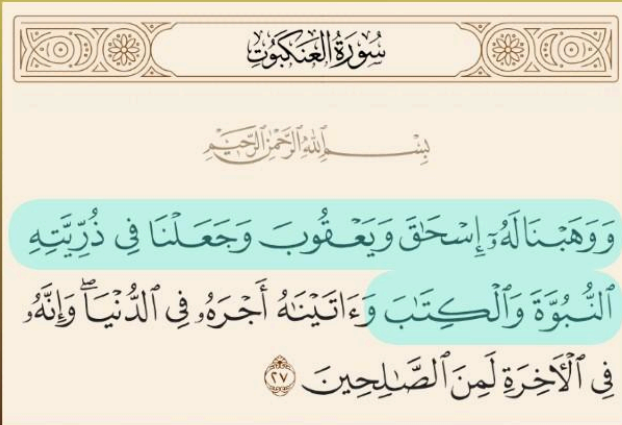 سُورَةُ العَنكَبُوتِ
بِسْمِ ٱللَّهِ ٱلرَّحْمَٰنِ ٱلرَّحِيمِ
وَوَهَبْنَا لَهُۥٓ إِسْحَٰقَ وَيَعْقُوبَ وَجَعَلْنَا فِى ذُرِّيَّتِهِ
ٱلنُّبُوَّةَ وَٱلْكِتَٰبَ وَءَاتَيْنَٰهُ أَجْرَهُۥ فِى ٱلدُّنْيَا ۖ وَإِنَّهُۥ
فِى ٱلْأَخِرَةِ لَمِنَ ٱلصَّٰلِحِينَ ٢٧